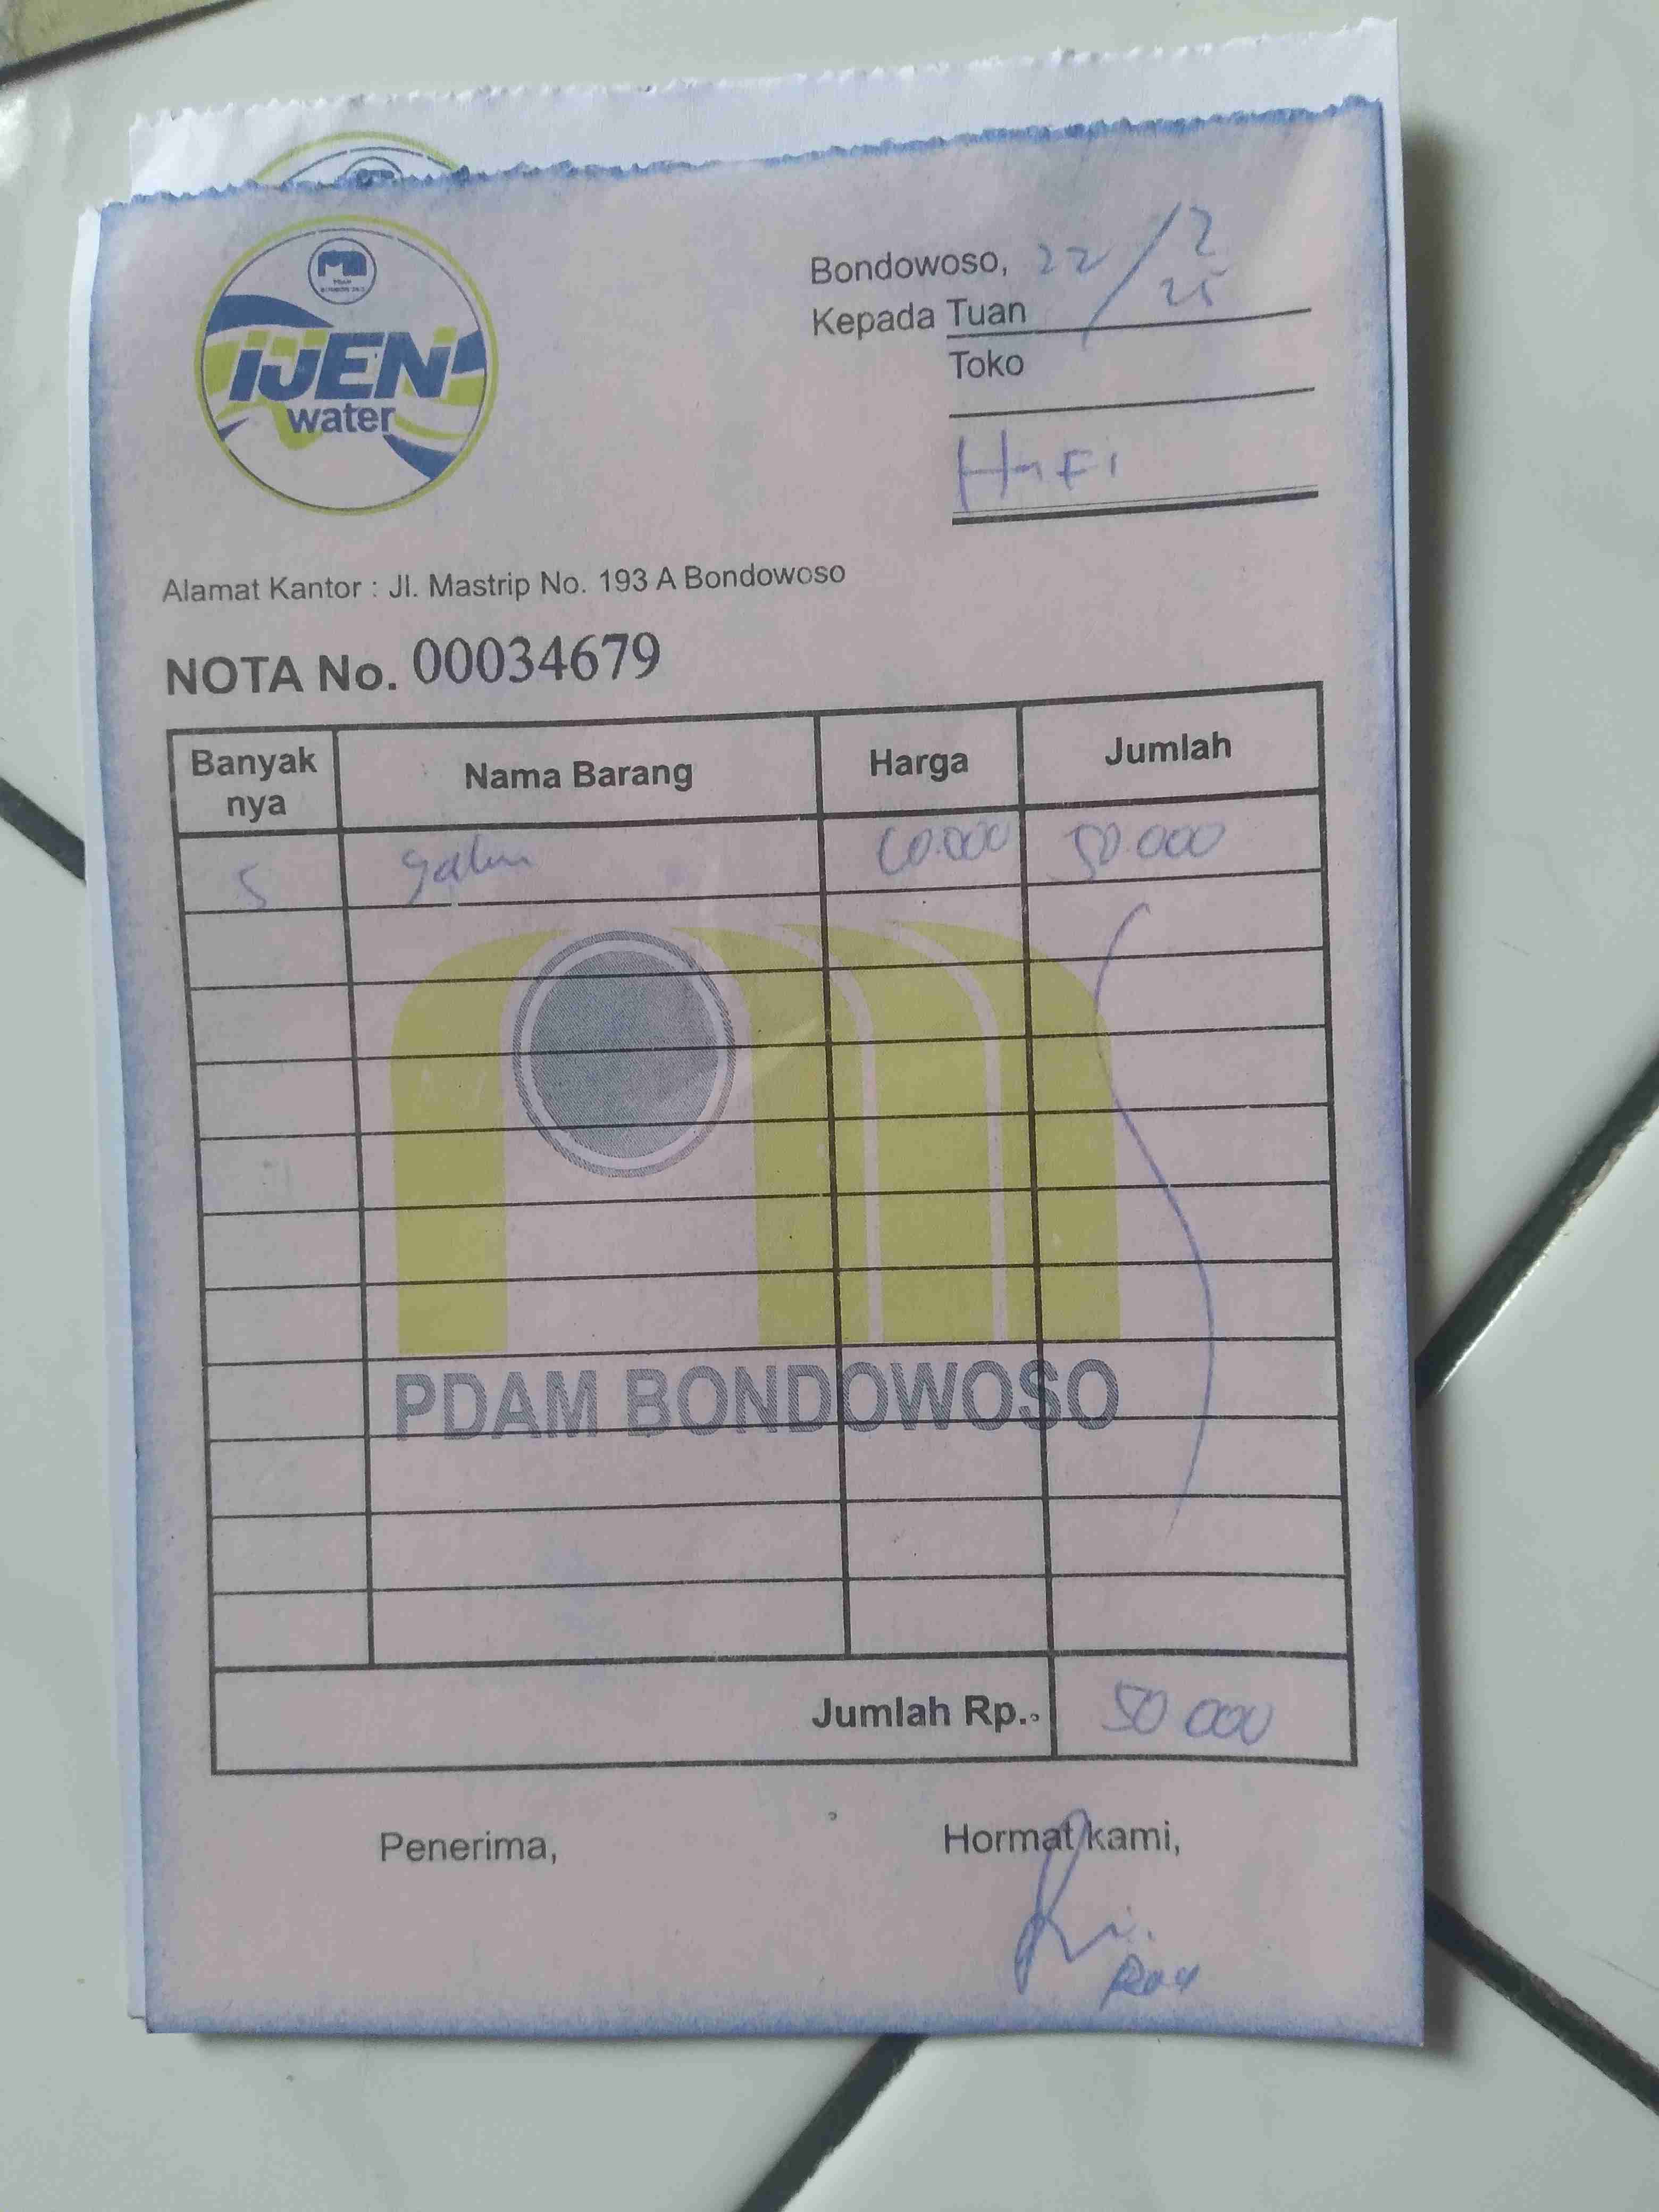 iJEN
water
Bondowoso, 22/2
25
Kepada Tuan
Toko
Hafi
Alamat Kantor : Jl. Mastrip No. 193 A Bondowoso
NOTA No. 00034679
Banyak nya Nama Barang Harga Jumlah
5 galon 10.000 50.000
PDAM BONDOWOSO
Jumlah Rp. 50 000
Penerima, Hormat kami,